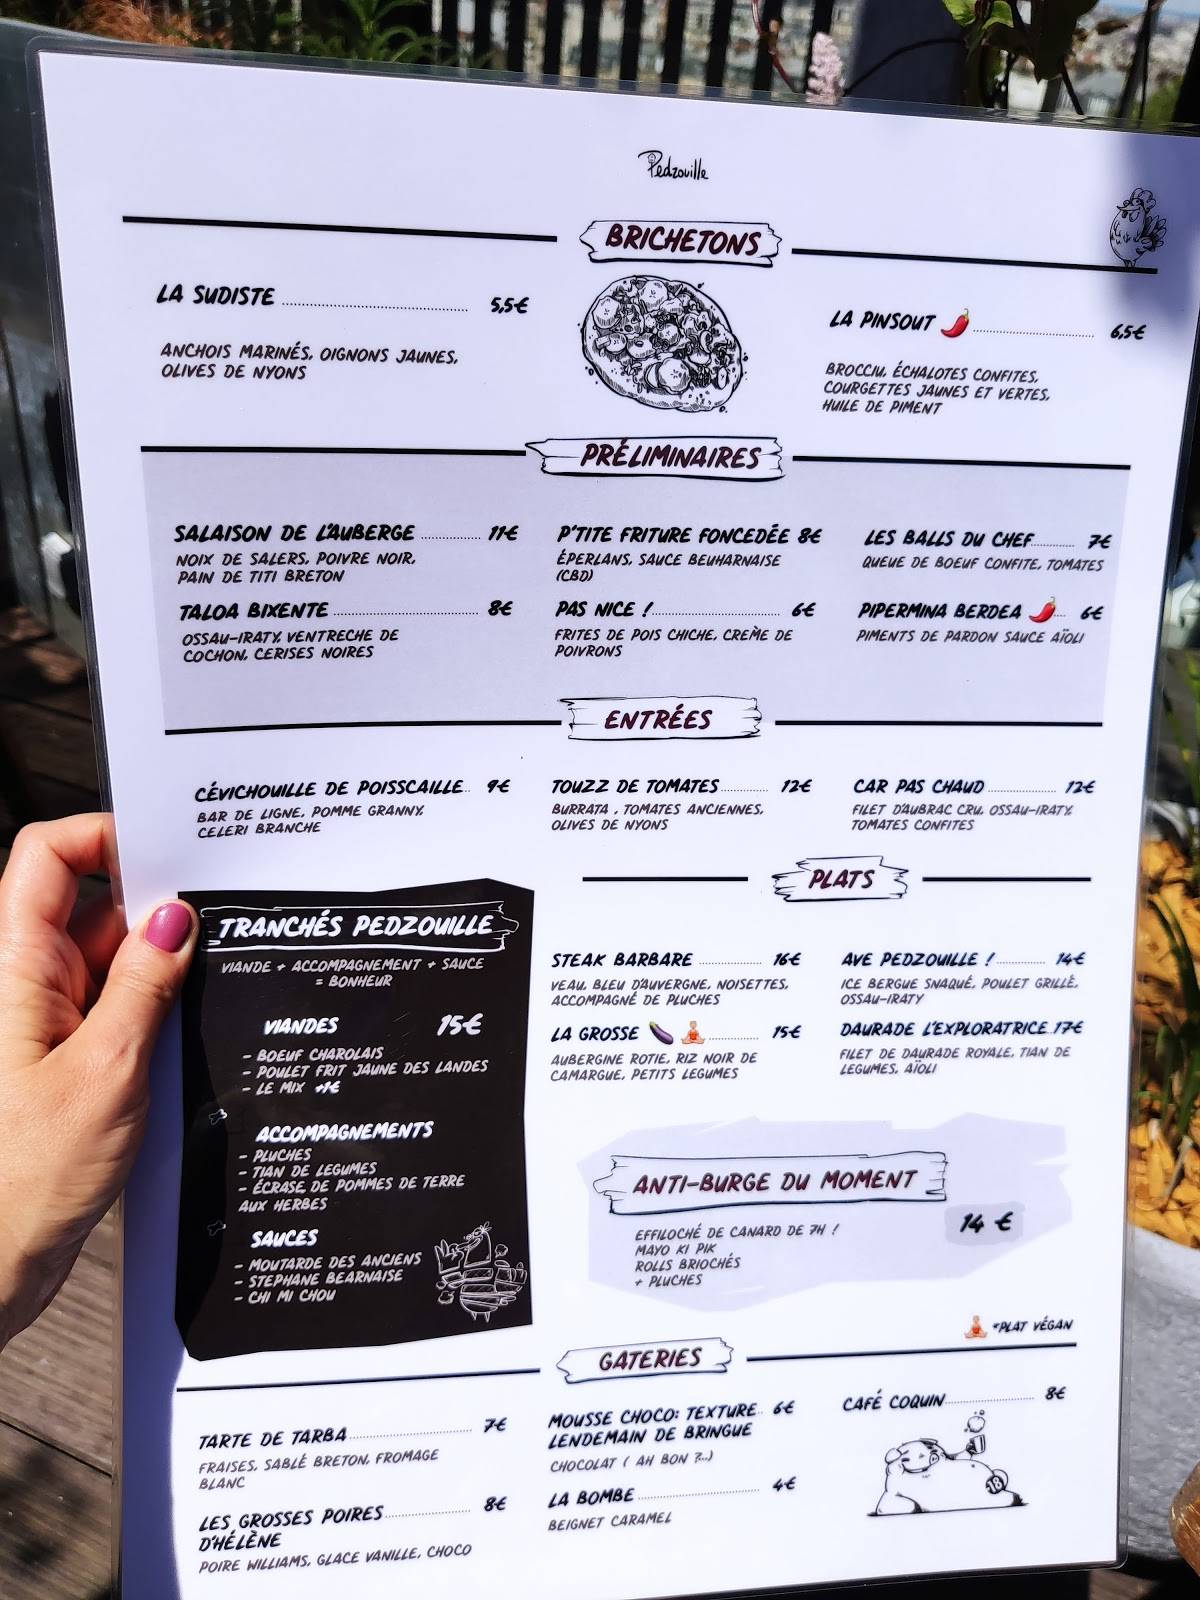 Pedzouille
BRICHETONS
LA SUDISTE 5,5€
ANCHOIS MARINÉS, OIGNONS JAUNES,
OLIVES DE NYONS
LA PINSOUT 🌶️ 6,5€
BROCCIU, ÉCHALOTES CONFITES,
COURGETTES JAUNES ET VERTES,
HUILE DE PIMENT
PRÉLIMINAIRES
SALAISON DE L'AUBERGE 11€
NOIX DE SALERS, POIVRE NOIR,
PAIN DE TITI BRETON
TALOA BIXENTE 8€
OSSAU-IRATY, VENTRECHE DE
COCHON, CERISES NOIRES
P'TITE FRITURE FONCEDÉE 8€
ÉPERLANS, SAUCE BEUHARNAISE
(CBD)
PAS NICE ! 6€
FRITES DE POIS CHICHE, CREME DE
POIVRONS
LES BALLS DU CHEF 7€
QUEUE DE BOEUF CONFITE, TOMATES
PIPERMINA BERDEA 🌶️ 6€
PIMENTS DE PARDON SAUCE AÏOLI
ENTRÉES
CÉVICHOUILLE DE POISSCAILLE 9€
BAR DE LIGNE, POMME GRANNY,
CELERI BRANCHE
TOUZZ DE TOMATES 12€
BURRATA , TOMATES ANCIENNES,
OLIVES DE NYONS
CAR PAS CHAUD 12€
FILET D'AUBRAC CRU, OSSAU-IRATY,
TOMATES CONFITES
TRANCHÉS PEDZOUILLE
VIANDE + ACCOMPAGNEMENT + SAUCE
= BONHEUR
VIANDES 15€
- BOEUF CHAROLAIS
- POULET FRIT JAUNE DES LANDES
- LE MIX +1€
ACCOMPAGNEMENTS
- PLUCHES
- TIAN DE LEGUMES
- ÉCRASE DE POMMES DE TERRE
AUX HERBES
SAUCES
- MOUTARDE DES ANCIENS
- STEPHANE BEARNAISE
- CHI MI CHOU
PLATS
STEAK BARBARE 16€
VEAU, BLEU D'AUVERGNE, NOISETTES,
ACCOMPAGNÉ DE PLUCHES
LA GROSSE 🍆 🧘 15€
AUBERGINE ROTIE, RIZ NOIR DE
CAMARGUE, PETITS LEGUMES
AVE PEDZOUILLE ! 14€
ICE BERGUE SNAQUÉ, POULET GRILLÉ,
OSSAU-IRATY
DAURADE L'EXPLORATRICE 17€
FILET DE DAURADE ROYALE, TIAN DE
LEGUMES, AÏOLI
ANTI-BURGE DU MOMENT
14 €
EFFILOCHÉ DE CANARD DE 7H !
MAYO KI PIK
ROLLS BRIOCHÉS
+ PLUCHES
🧘 *PLAT VÉGAN
GATERIES
TARTE DE TARBA 7€
FRAISES, SABLÉ BRETON, FROMAGE
BLANC
LES GROSSES POIRES 8€
D'HÉLÈNE
POIRE WILLIAMS, GLACE VANILLE, CHOCO
MOUSSE CHOCO: TEXTURE 6€
LENDEMAIN DE BRINGUE
CHOCOLAT ( AH BON ?...)
LA BOMBE 4€
BEIGNET CARAMEL
CAFÉ COQUIN 8€
18